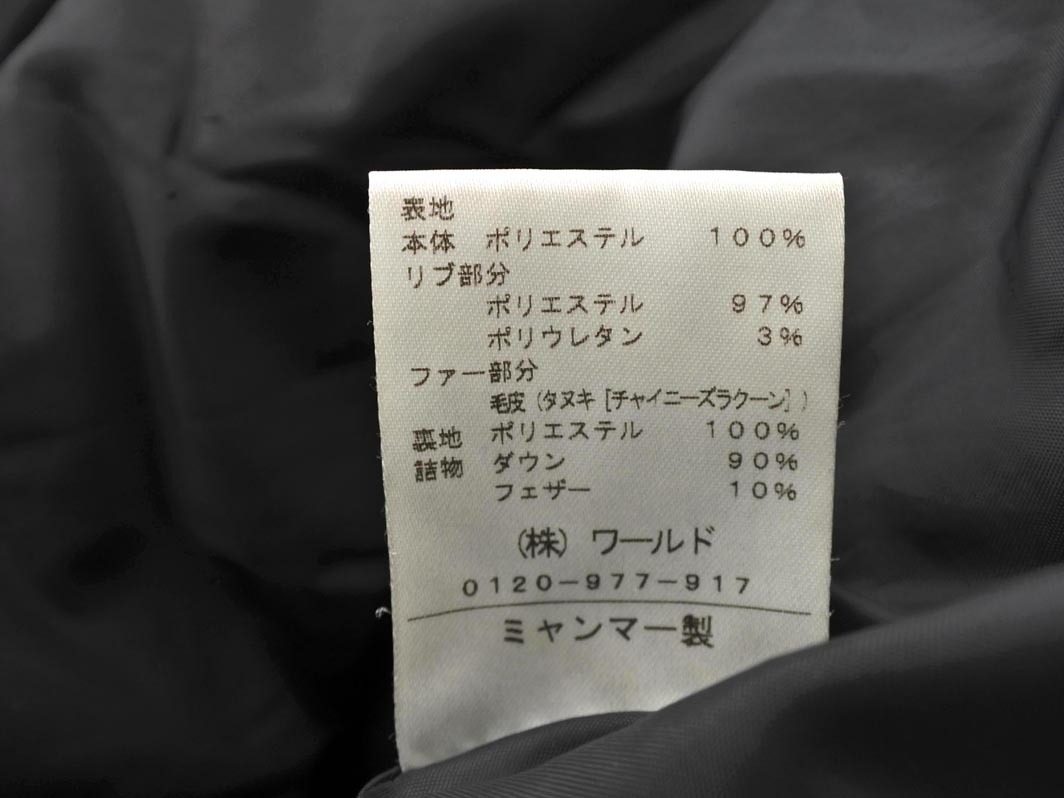 表地
本体 ポリエステル 100%
リブ部分
ポリエステル 97%
ポリウレタン 3%
ファー部分
毛皮(タヌキ[チャイニーズラクーン])
裏地 ポリエステル 100%
詰物 ダウン 90%
フェザー 10%
(株)ワールド
0120-977-917
ミャンマー製